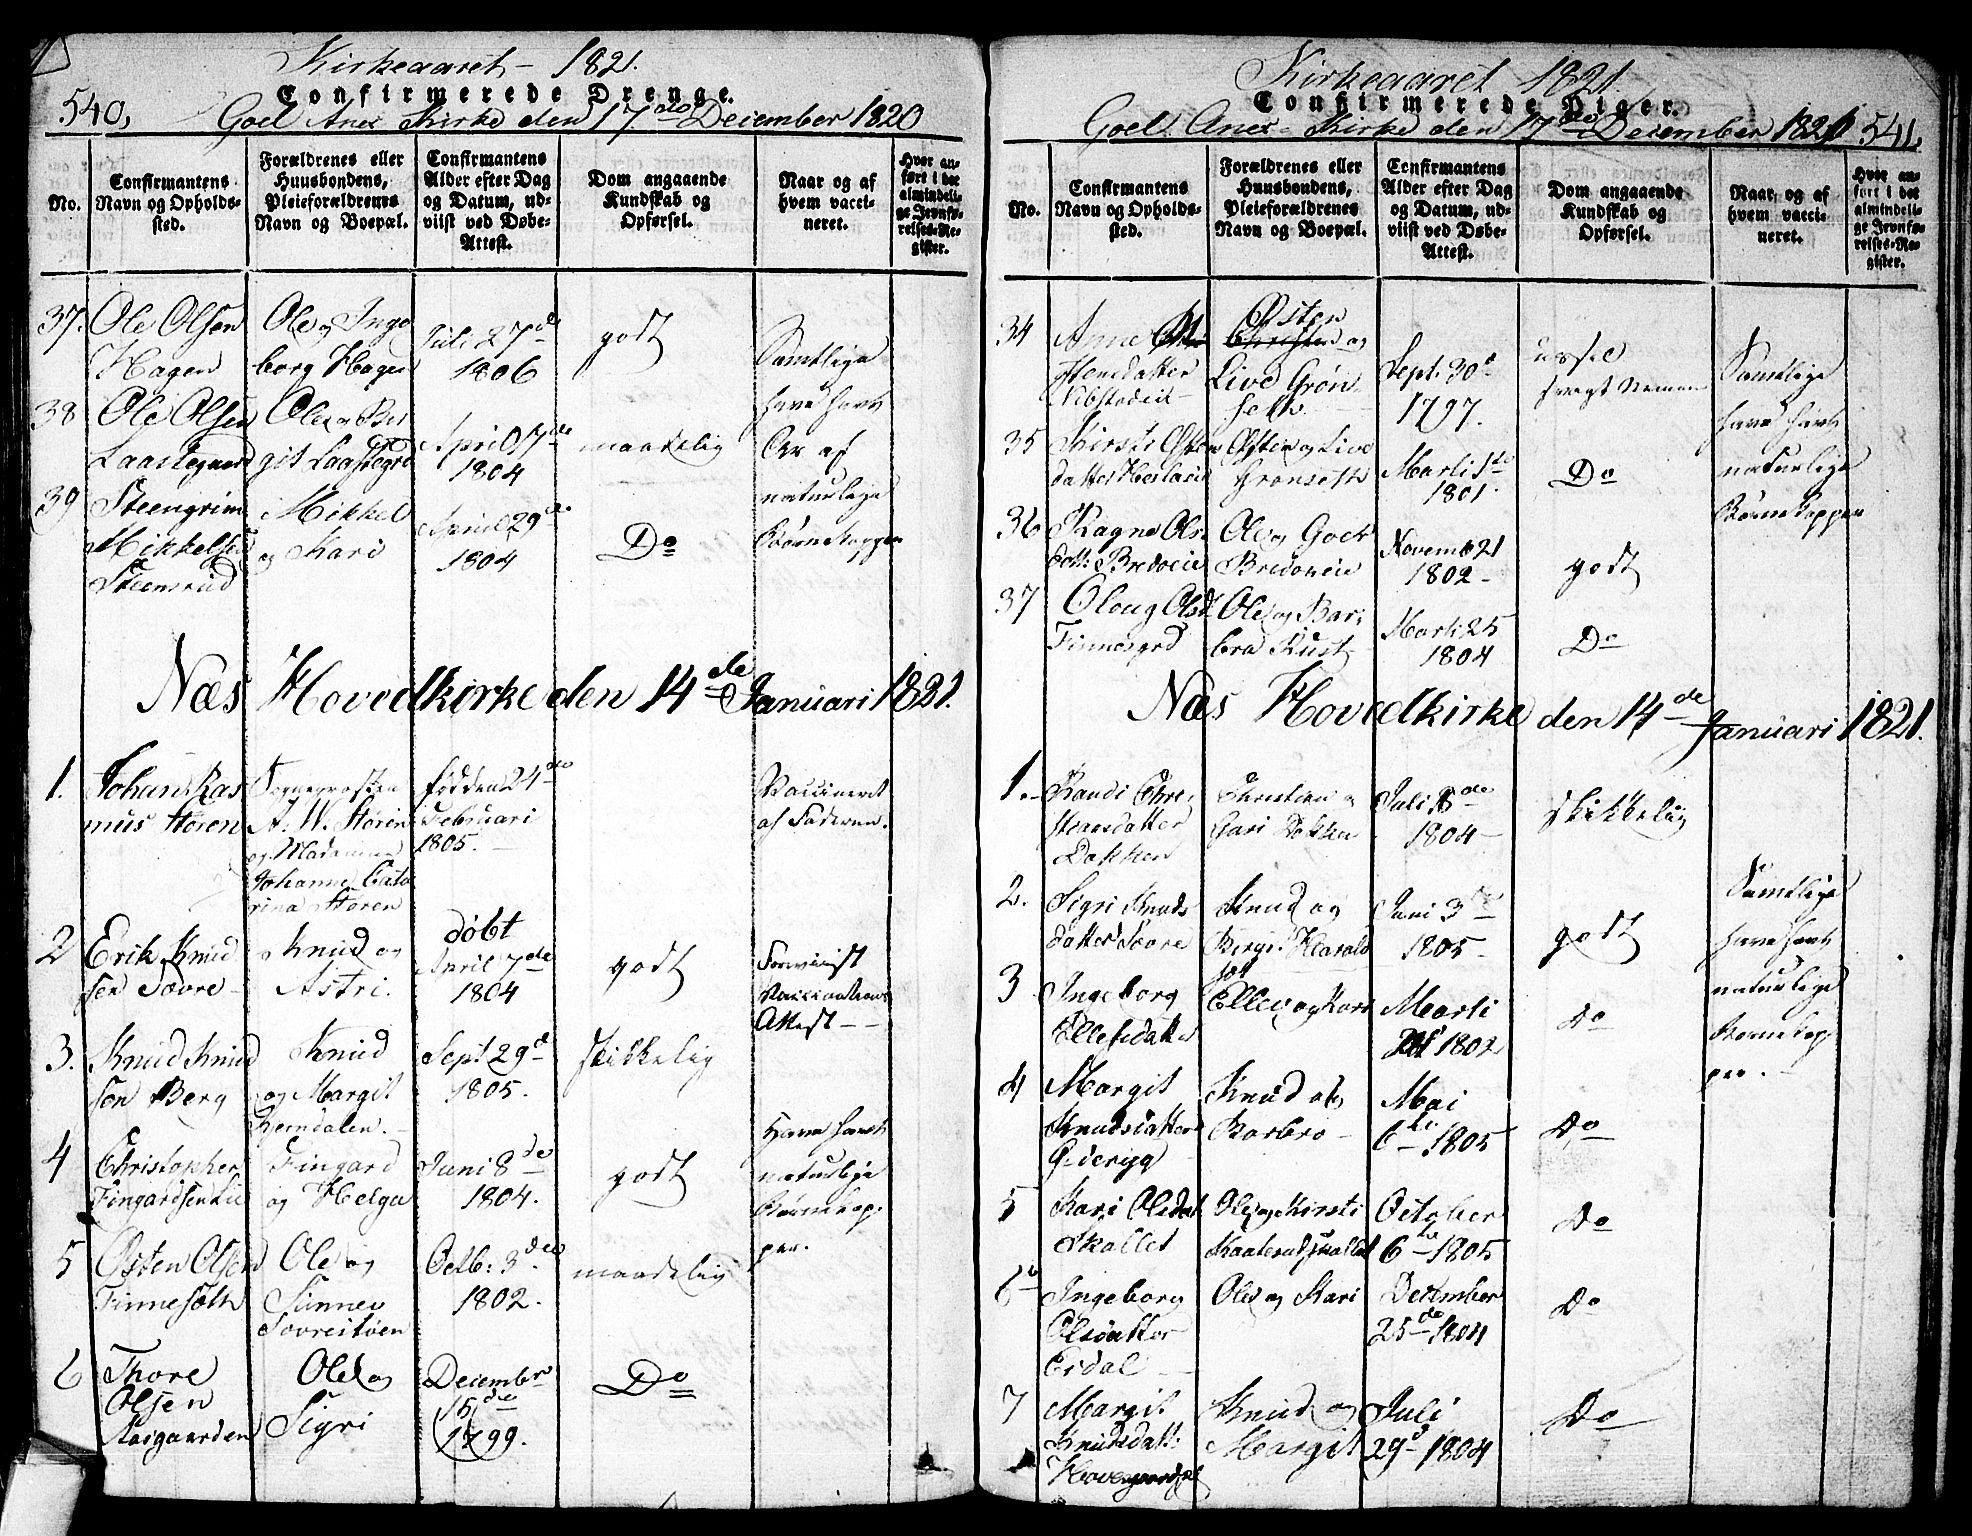 Kirkeaaret 1821.
Confirmerede Drenge.
540,
Goel Anex Kirke den 17de December 1820
No.
Confirmantens
Navn og Opholds-
sted.
Forældrenes eller
Huusbondens,
Pleieforældrenes
Navn og Boepæl.
Confirmantens
Alder efter Dag
og Datum, ud-
viist ved Døbe-
Attest.
Dom angaaende
Kundskab og
Opførsel.
Naar og af
hvem vacci-
neret.
Hvor an-
ført i det
almindeli-
ge Jevnfø-
relses-Re-
gister.
37.
Ole Olsen
Hagen
Ole og Inge
borg Hagen
Juli 27de
1806
godt
38
Ole Olsen
Laastegaard
Ole og Bir
git Laastegrd
April 17de
1804
maadelig
39
Steengrim
Mikkelsen
Steensrud
Mikkel
og Kari
April 29de
1804
Do
Samtlige
have havt
Ar af
naturlige
Børnekopper
Næs Hovedkirke den 14de Januari 1821.
1.
Johan Ras
mus Støren
Sogneprosten
A. W. Støren
og Madamme
Johanne Cata
rina Støren
født den 24de
Februari
1805.
Vaccineret
af Faderen.
2
Erik Knud
sen Sævre
Knud og
Astri.
døbt
April 7de
1804
godt
Foreviist
Vaccinations
Attest
3.
Knud Knud
sen Berg
Knud
og Margit
Bjerndalen.
Sept 29d
1805.
skikkelig
4
Christopher
Fingardsen Lie
Fingard
og Helga
Juni 8de
1804.
godt
Have havt
naturlige
Børnekop-
per.
5
Østen Olsen
Finnesæth
Ole og
Sunnev
Sovreitøen
Octb: 3den
1802.
maadelig
6
Thore
Olsen
Aasgaarden
Ole og
Sigri
December
15de
1799.
Do
Kirkeaaret 1821.
Confirmerede Piger.
Goel Anex-Kirke den 17de December 1820
541,
No.
Confirmantens
Navn og Opholds-
sted.
Forældrenes eller
Huusbondens,
Pleieforældrenes
Navn og Boepæl.
Confirmantens
Alder efter Dag
og Datum, ud-
viist ved Døbe-
Attest.
Dom angaaende
Kundskab og
Opførsel.
Naar, og af
hvem vacci-
neret.
Hvor an-
ført i det
almindeli-
ge Jevnfø-
relses-Re-
gister.
34
Anne
Østen
Christen og
Live Grøn-
seth
Sept. 30d
1797.
ussel
svagt Nemme
35
Kirsti Østens
datter
Østen og Live
Grønseth
Marti 1ste
1801.
Do
36
Ragne Ols
datt: Bredveie
Ole og Goer
Bredveie
Novemb 21
1802
godt
37
Oloug Olsd
Finnesgrd
Ole og Bar-
bra Rust
Marti 25
1804
Do
Samtlige
have havt
naturlige
Børnekopper
Næs Hovedkirke den 14de Januari 1821.
1.
Randi Chri
stiansdatter
Dokken
Christian og
Gari Dokken
Juli 8de
1804
skikkelig
2.
Sigri Knuds
datter Sævre
Knud og
Birgit Harald
set
Juni 3de
1805
godt
3
Ingeborg
Ellefsdatter
Ellev og Kari
Marti
1802
Do
4
Margit
Knudsdatter
Gjderyg
Knud og
Barbro
Mai
6te 1805
Do
Samtlige
have havt
naturlige
Børnekop-
per.
5
Kari Olsdat
Skallet
Ole og Kirsti
October
6te 1805
Do
6
Ingeborg
Olsdatter
Eidal
Ole og Kari
December
25de 1804
Do
7
Margit
Knudsdatt:
Knud og
Margit
Juli
29d 1804
Do